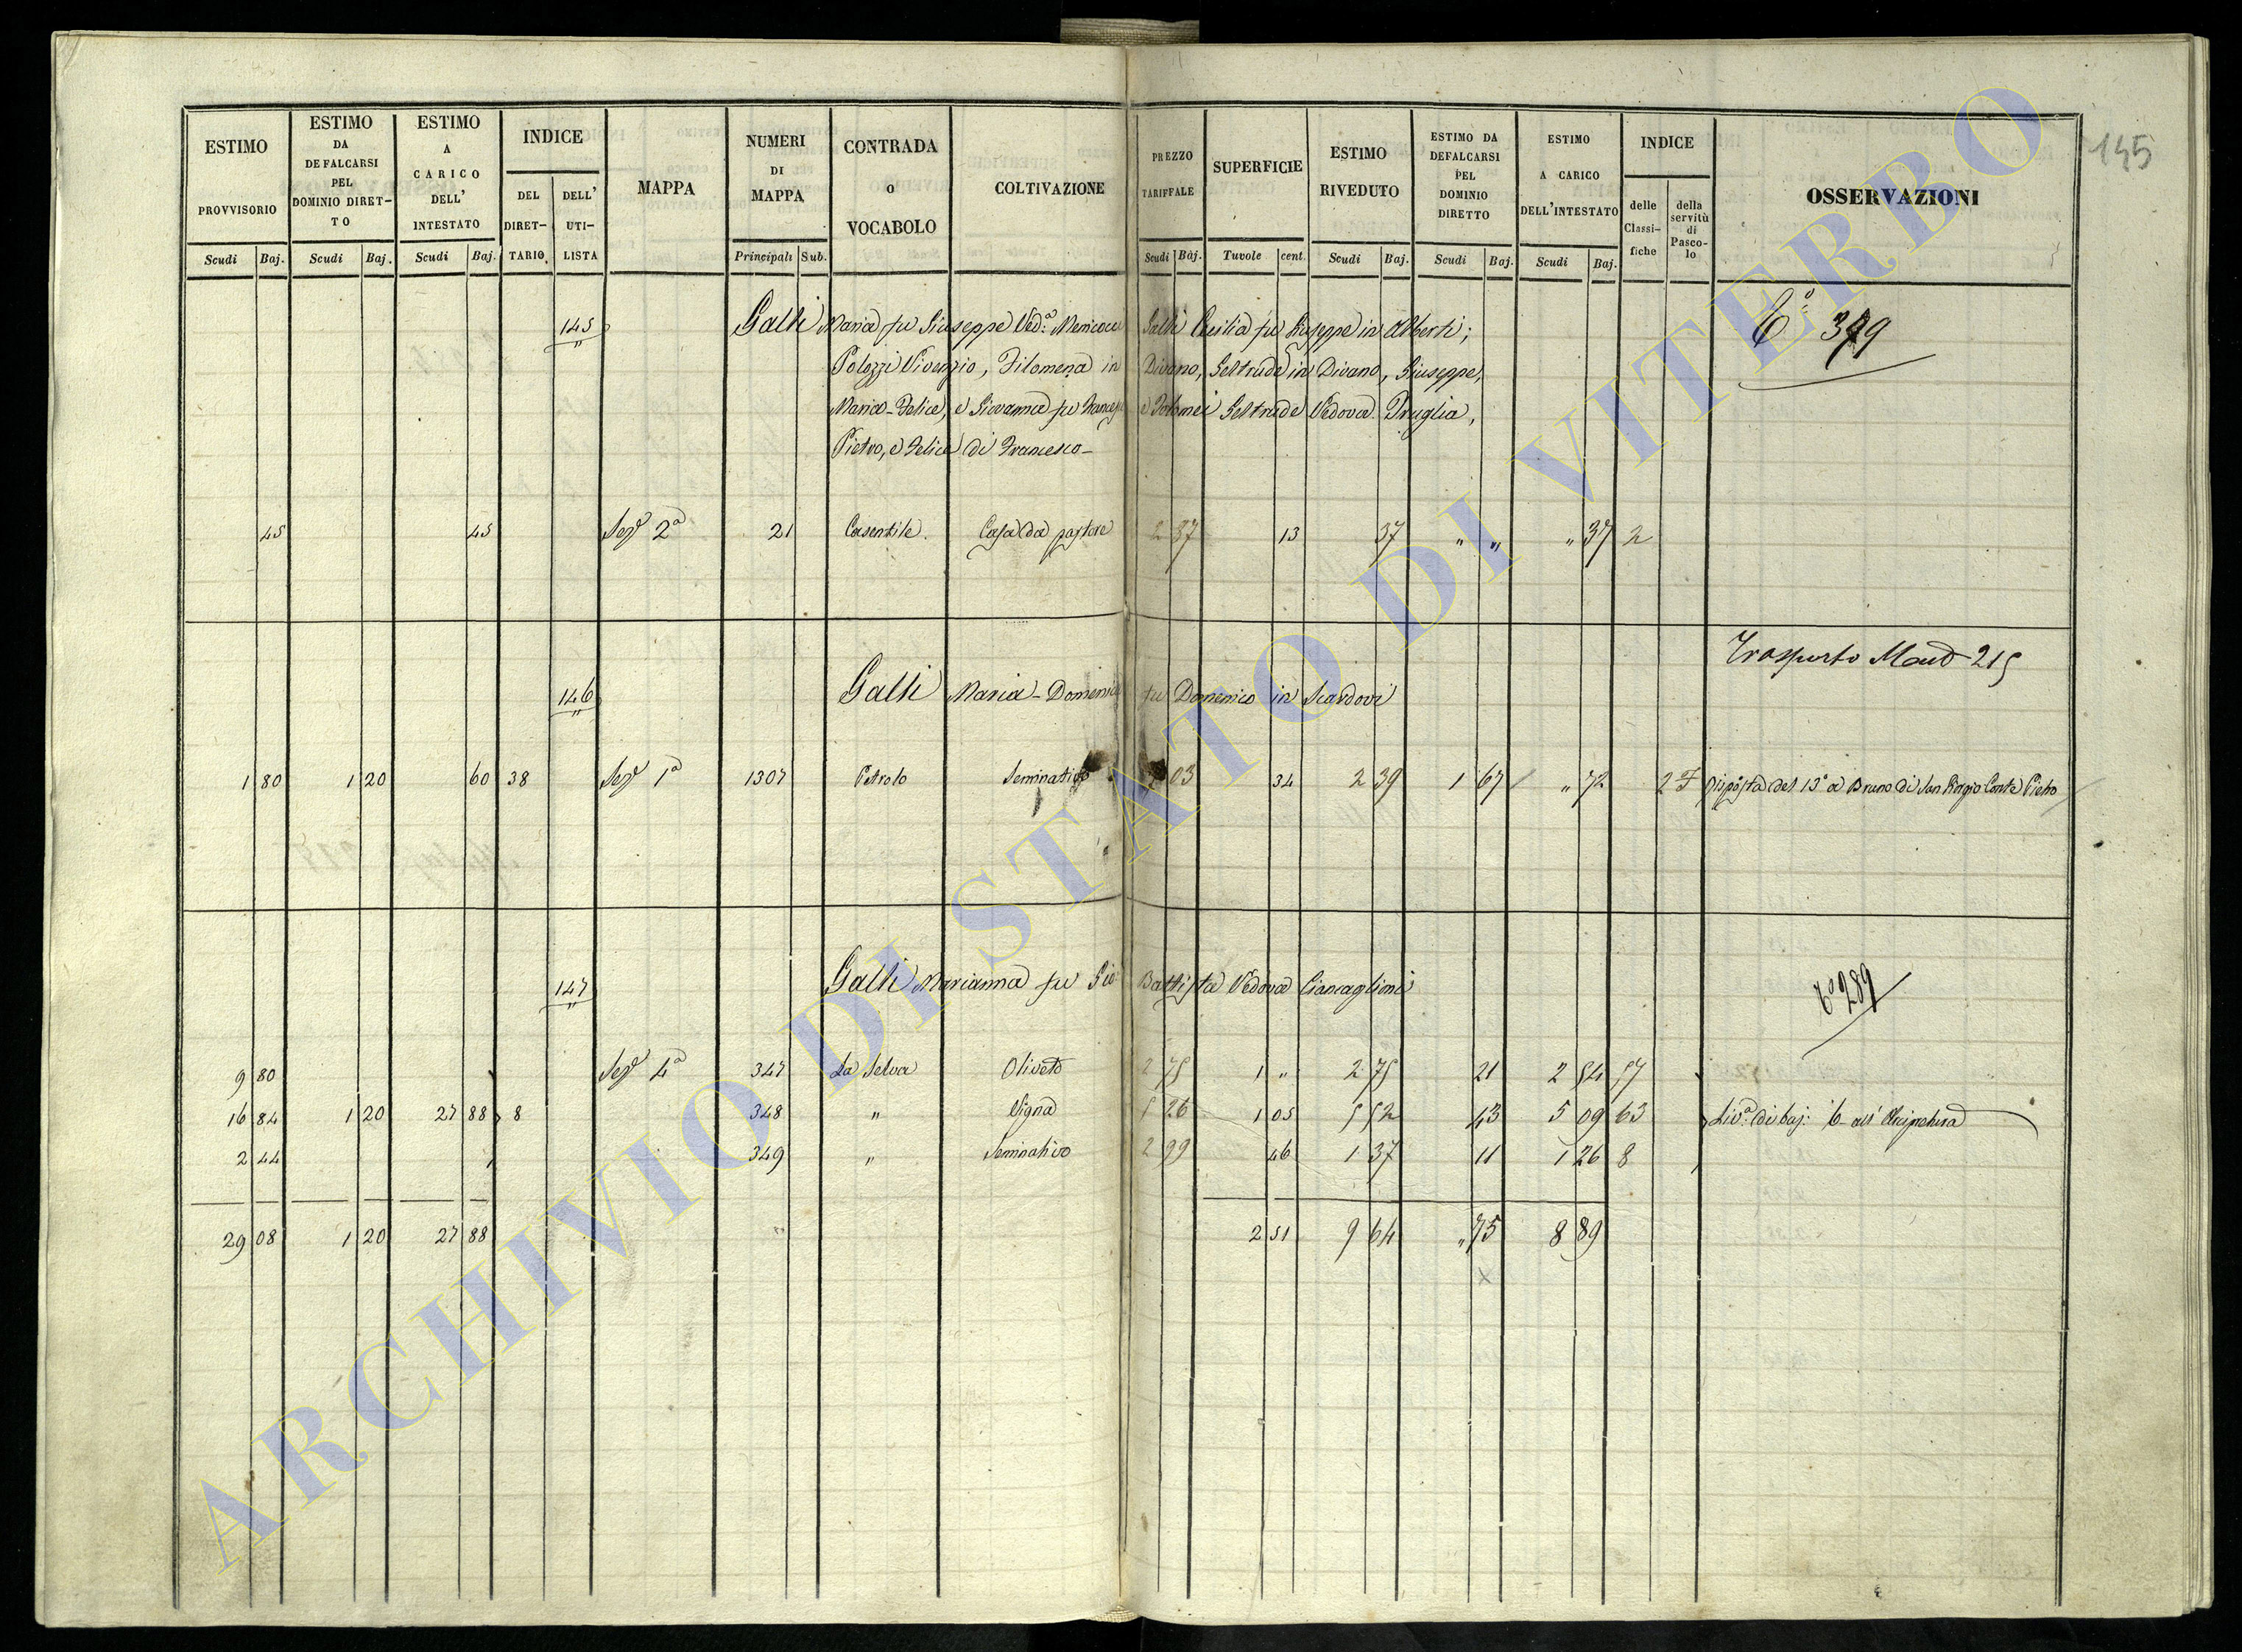 145
ESTIMO PROVVISORIO Scudi Baj.
ESTIMO DA DEFALCARSI PEL DOMINIO DIRETTO Scudi Baj.
ESTIMO A CARICO DELL' INTESTATO Scudi Baj.
INDICE DEL DIRETTARIO DELL' UTILISTA
MAPPA
NUMERI DI MAPPA Principali Sub.
CONTRADA O VOCABOLO
COLTIVAZIONE
PREZZO TARIFFALE Scudi Baj.
SUPERFICIE Tavole cent.
ESTIMO RIVEDUTO Scudi Baj.
ESTIMO DA DEFALCARSI PEL DOMINIO DIRETTO Scudi Baj.
ESTIMO A CARICO DELL'INTESTATO Scudi Baj.
INDICE delle Classifiche della servitù di Pascolo
OSSERVAZIONI
145 Galli Maria fu Giuseppe Ved.ª Galli Cecilia fu Giuseppe in Alberti; 379
Polozzi Vivenzio, Filomena in Divano, Geltrude in Divano, Giuseppe,
Maria-Felice, e Giovanna fu e Geltrude Vedova Truglia,
Pietro, e Felice di Francesco
45 45 Sez.e 2ª 21 Casentile. Casa da pastore 2 87 13 37 " " " 37 2
Trasporto 215
146 Galli Maria-Domenica fu Domenico in Scardovi
1 80 1 20 60 38 Sez.e 1ª 1307 Petrolo Seminativo 03 34 2 39 1 67 " 72 2 F Risposta del 13º a Bruno di San Giorgio Conte Pietro
147 Galli Marianna fu Gio Battista Vedova Ciancaglioni 289
9 80 Sez.e 4ª 347 La Selva Oliveto 2 75 1 " 2 75 21 2 54 57
16 84 1 20 27 88 8 348 " Vigna 5 26 1 05 5 52 43 5 09 63 Liv.ª di baj: 6 all' Arcipretura
2 44 349 " Seminativo 2 99 46 1 37 11 1 26 8
29 08 1 20 27 88 2 51 9 64 " 75 8 89
ARCHIVIO DI STATO DI VITERBO